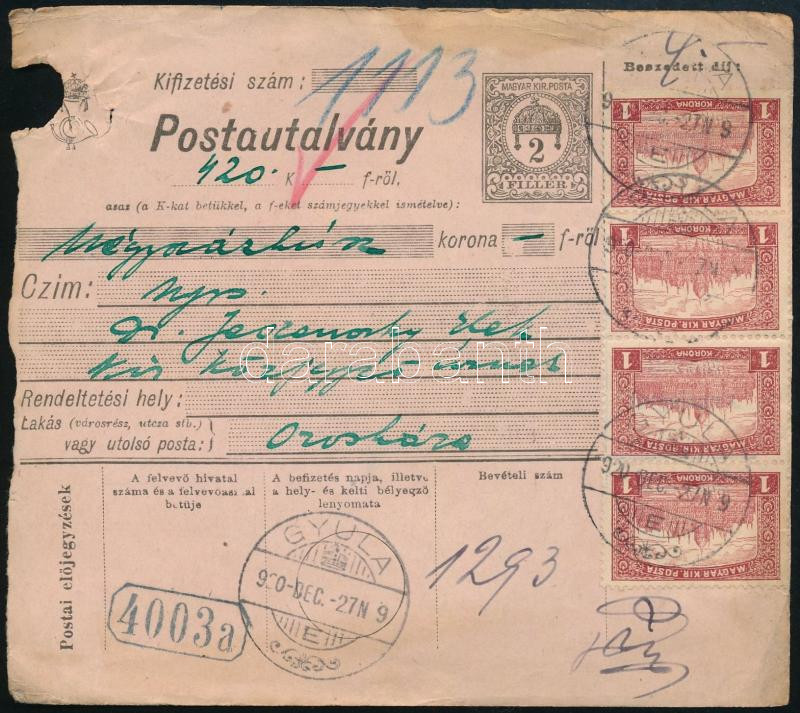 Kifizetési szám: 1113
Beszedett díj:
4.-
MAGYAR KIR. POSTA
2
FILLER
Postautalvány
420. K - f-ről.
azaz (a K-kat betükkel, a f-eket számjegyekkel ismételve):
korona - f-ről
Czim:
Dr.
Kir. Közjegyző
Rendeltetési hely:
Lakás (városrész, utcza stb.)
vagy utolsó posta:
Orosháza
Postai előjegyzések
A felvevő hivatal
száma és a felvevőasztal
betüje
A befizetés napja, illetve
a hely- és kelti bélyegző
lenyomata
Bevételi szám
1293
4003a
GYULA
920-DEC.-27N9
E
1 KORONA 1
MAGYAR KIR. POSTA
1 KORONA 1
MAGYAR KIR. POSTA
1 KORONA 1
MAGYAR KIR. POSTA
1 KORONA 1
MAGYAR KIR. POSTA
920-DEC.-27N9
E
darabanth